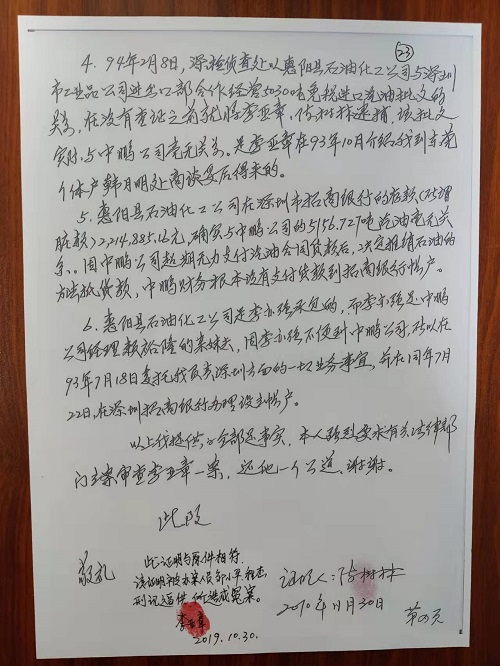 (23)
4. 94年2月8日,深检侦查处以惠阳县石油化工公司与深圳
市工业品公司进出口部合作经营5030吨免税进口汽油批文的
关系,在没有查证之前就将李亚章,陈树林逮捕,该批文
实际与中鹏公司毫无关系。是李亚章在93年10月介绍我到东莞
个体户韩月明处商谈妥后得来的。
5. 惠阳县石油化工公司在深圳市招商银行的存款(所谓
赃款)2214,885.16元,确实与中鹏公司的5156.727吨汽油毫无关
系。因中鹏公司超期无力支付汽油合同货款后,决定推销石油的
方法抵货款,中鹏财务根本没有支付货款到招商银行帐户。
6. 惠阳县石油化工公司是李亦强承包的,而李亦强是中鹏
公司经理赖裕隆的表妹夫,因李亦强不便到中鹏公司,所以在
93年7月18日委托我负责深圳方面的一切业务事宜,并在同年7月
22日,在深圳招商银行办理设立帐户。
以上线提供的全部是事实,本人强烈要求有关法律部
门立案审查李亚章一案,还他一个公道,谢谢。
此致
敬礼
证明人:陈树林
2010年11月30日
第四页
此证明与原件相符.
该证明被办案人员邹小平程杰,
刑讯逼供所造成冤案。
李亚章
2019.10.30.